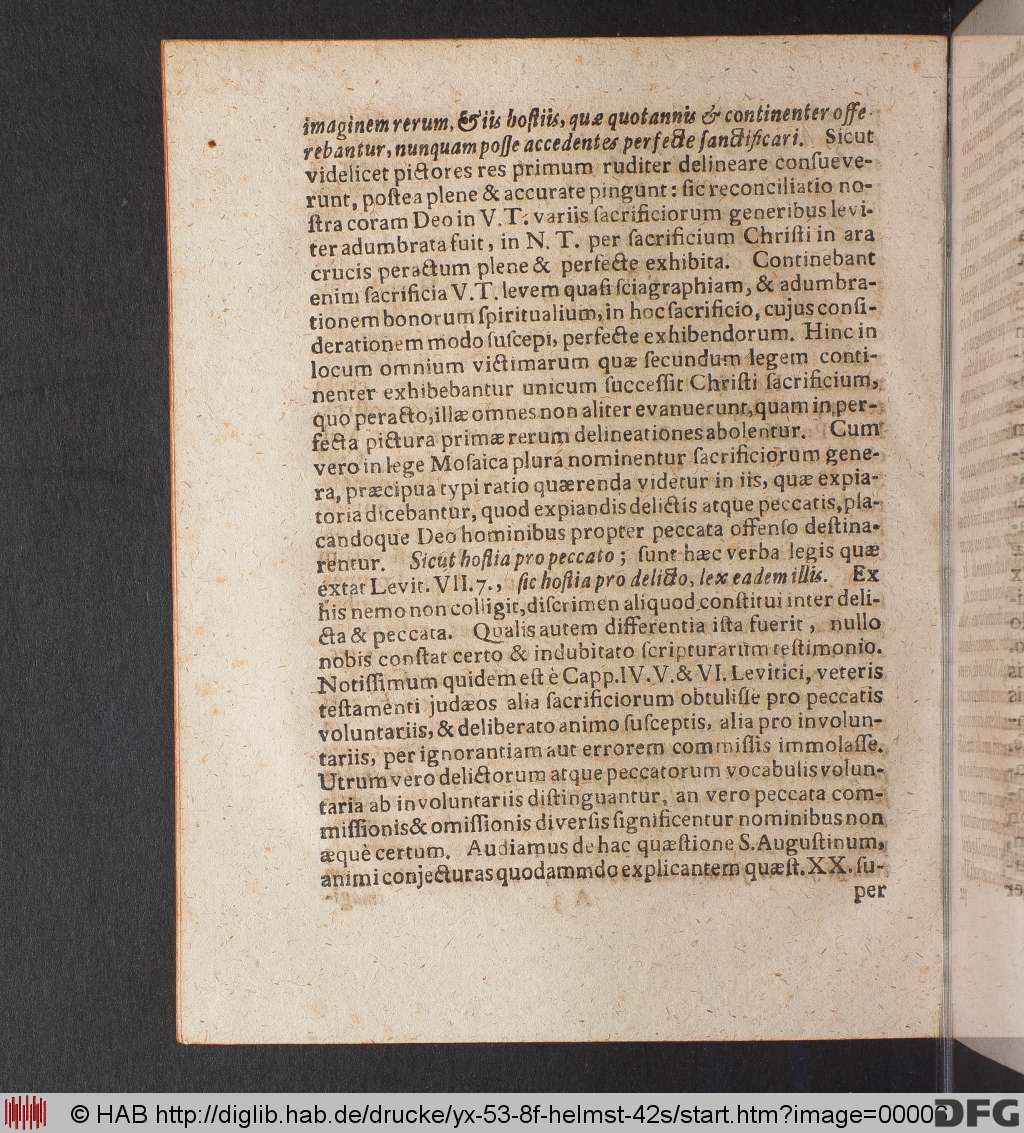 imaginem rerum, & iis hoſtiis, quæ quotannis & continenter offe-
rebantur, nunquam poſſe accedentes perfecte ſanctificari. Sicut
videlicet pictores res primum ruditer delineare conſueve-
runt, poſtea plene & accurate pingunt: ſic reconciliatio no-
ſtra coram Deo in V. T. variis ſacrificiorum generibus levi-
ter adumbrata fuit, in N. T. per ſacrificium Chriſti in ara
crucis peractum plene & perfecte exhibita. Continebant
enim ſacrificia V. T. levem quaſi ſciagraphiam, & adumbra-
tionem bonorum ſpiritualium, in hoc ſacrificio, cujus conſi-
derationem modo ſuſcepi, perfecte exhibendorum. Hinc in
locum omnium victimarum quæ ſecundum legem conti-
nenter exhibebantur unicum ſucceſſit Chriſti ſacrificium,
quo peracto, illæ omnes non aliter evanuerunt, quam in per-
fecta pictura primæ rerum delineationes abolentur. Cum
vero in lege Moſaica plura nominentur ſacrificiorum gene-
ra, præcipua typi ratio quærenda videtur in iis, quæ expia-
toria dicebantur, quod expiandis delictis atque peccatis, pla-
candoque Deo hominibus propter peccata offenſo deſtina-
rentur. Sicut hoſtia pro peccato; ſunt hæc verba legis quæ
extat Levit. VII. 7., ſic hoſtia pro delicto, lex eadem illis. Ex
his nemo non colligit, diſcrimen aliquod conſtitui inter deli-
cta & peccata. Qualis autem differentia iſta fuerit, nullo
nobis conſtat certo & indubitato ſcripturarum teſtimonio.
Notiſſimum quidem eſt è Capp. IV. V. & VI. Levitici, veteris
teſtamenti judæos alia ſacrificiorum obtuliſſe pro peccatis
voluntariis, & deliberato animo ſuſceptis, alia pro involun-
tariis, per ignorantiam aut errorem commiſſis immolaſſe.
Utrum vero delictorum atque peccatorum vocabulis volun-
taria ab involuntariis diſtinguantur, an vero peccata com-
miſſionis & omiſſionis diverſis ſignificentur nominibus non
æquè certum. Audiamus de hac quæſtione S. Auguſtinum,
animi conjecturas quodammdo explicantem quæſt. XX. ſu-
per
© HAB http://diglib.hab.de/drucke/yx-53-8f-helmst-42s/start.htm?image=00006
DFG